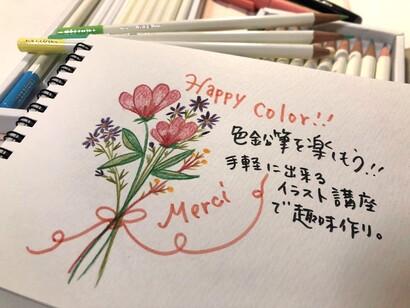 Happy Color!!
色鉛筆を楽しもう!!
手軽に出来る
イラスト講座
で趣味作り。
Merci